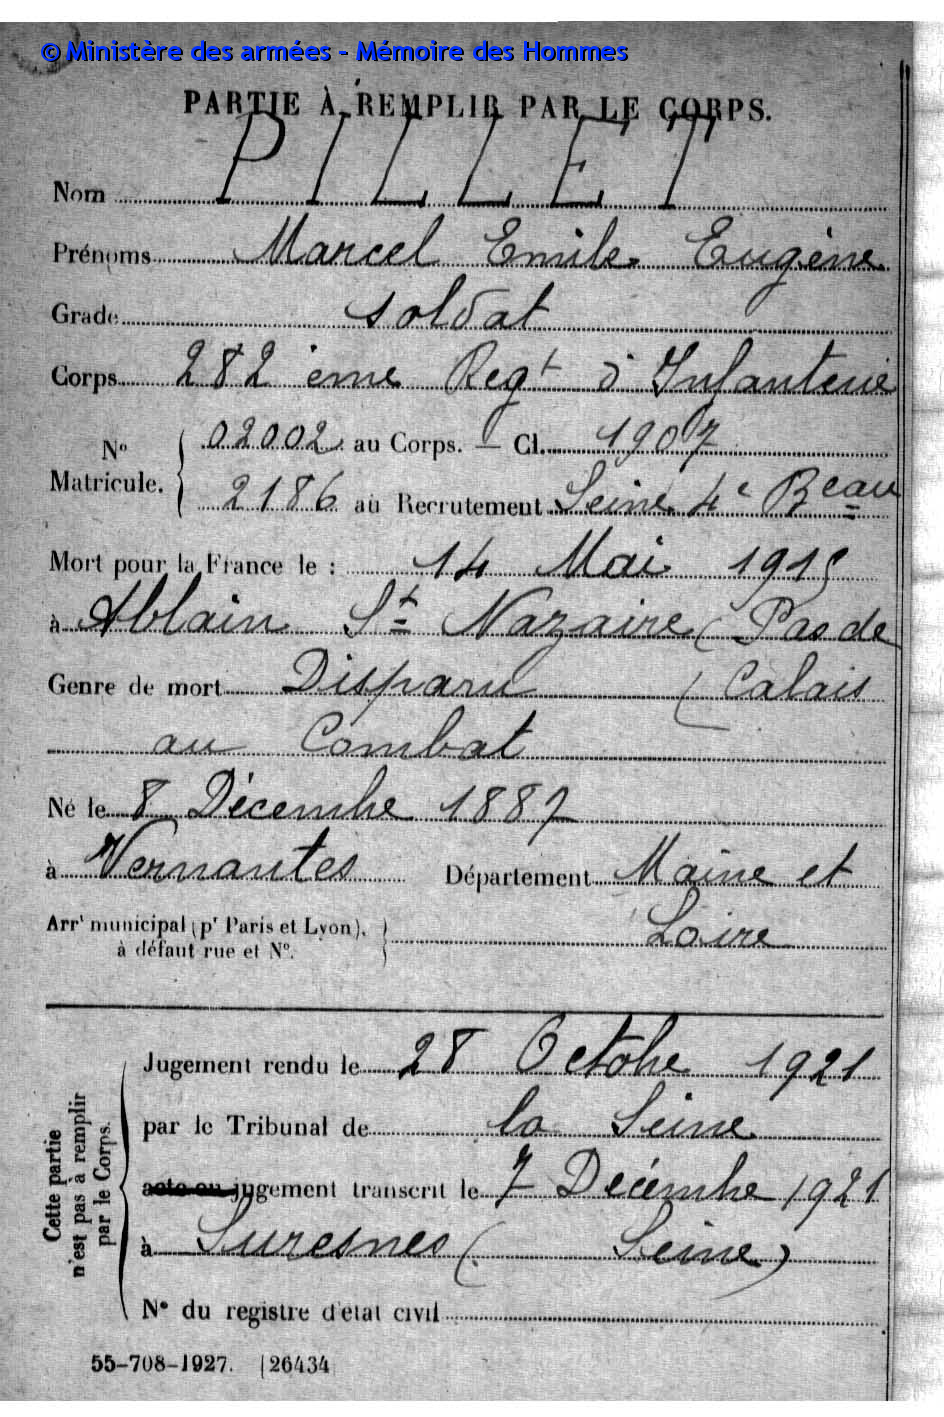 © Ministère des armées - Mémoire des Hommes
PARTIE À REMPLIR PAR LE CORPS.
Nom PILLET
Prénoms Marcel Emile Eugène
Grade soldat
Corps 282 ème Regt d'Infanterie
No Matricule. { 02002 au Corps. — Cl. 1907
2186 au Recrutement Seine 4e Beau
Mort pour la France le : 14 Mai 1915
à Ablain St Nazaire (Pas de
Genre de mort Disparu (Calais
au Combat
Né le 8 Décembre 1887
à Vernantes Département Maine et
Arrt municipal (pr Paris et Lyon), Loire
à défaut rue et No.
Jugement rendu le 28 Octobre 1921
par le Tribunal de la Seine
acte ou jugement transcrit le 7 Décembre 1921
à Suresnes (Seine)
No du registre d'état civil
Cette partie
n'est pas à remplir
par le Corps.
55-708-1927. [26434